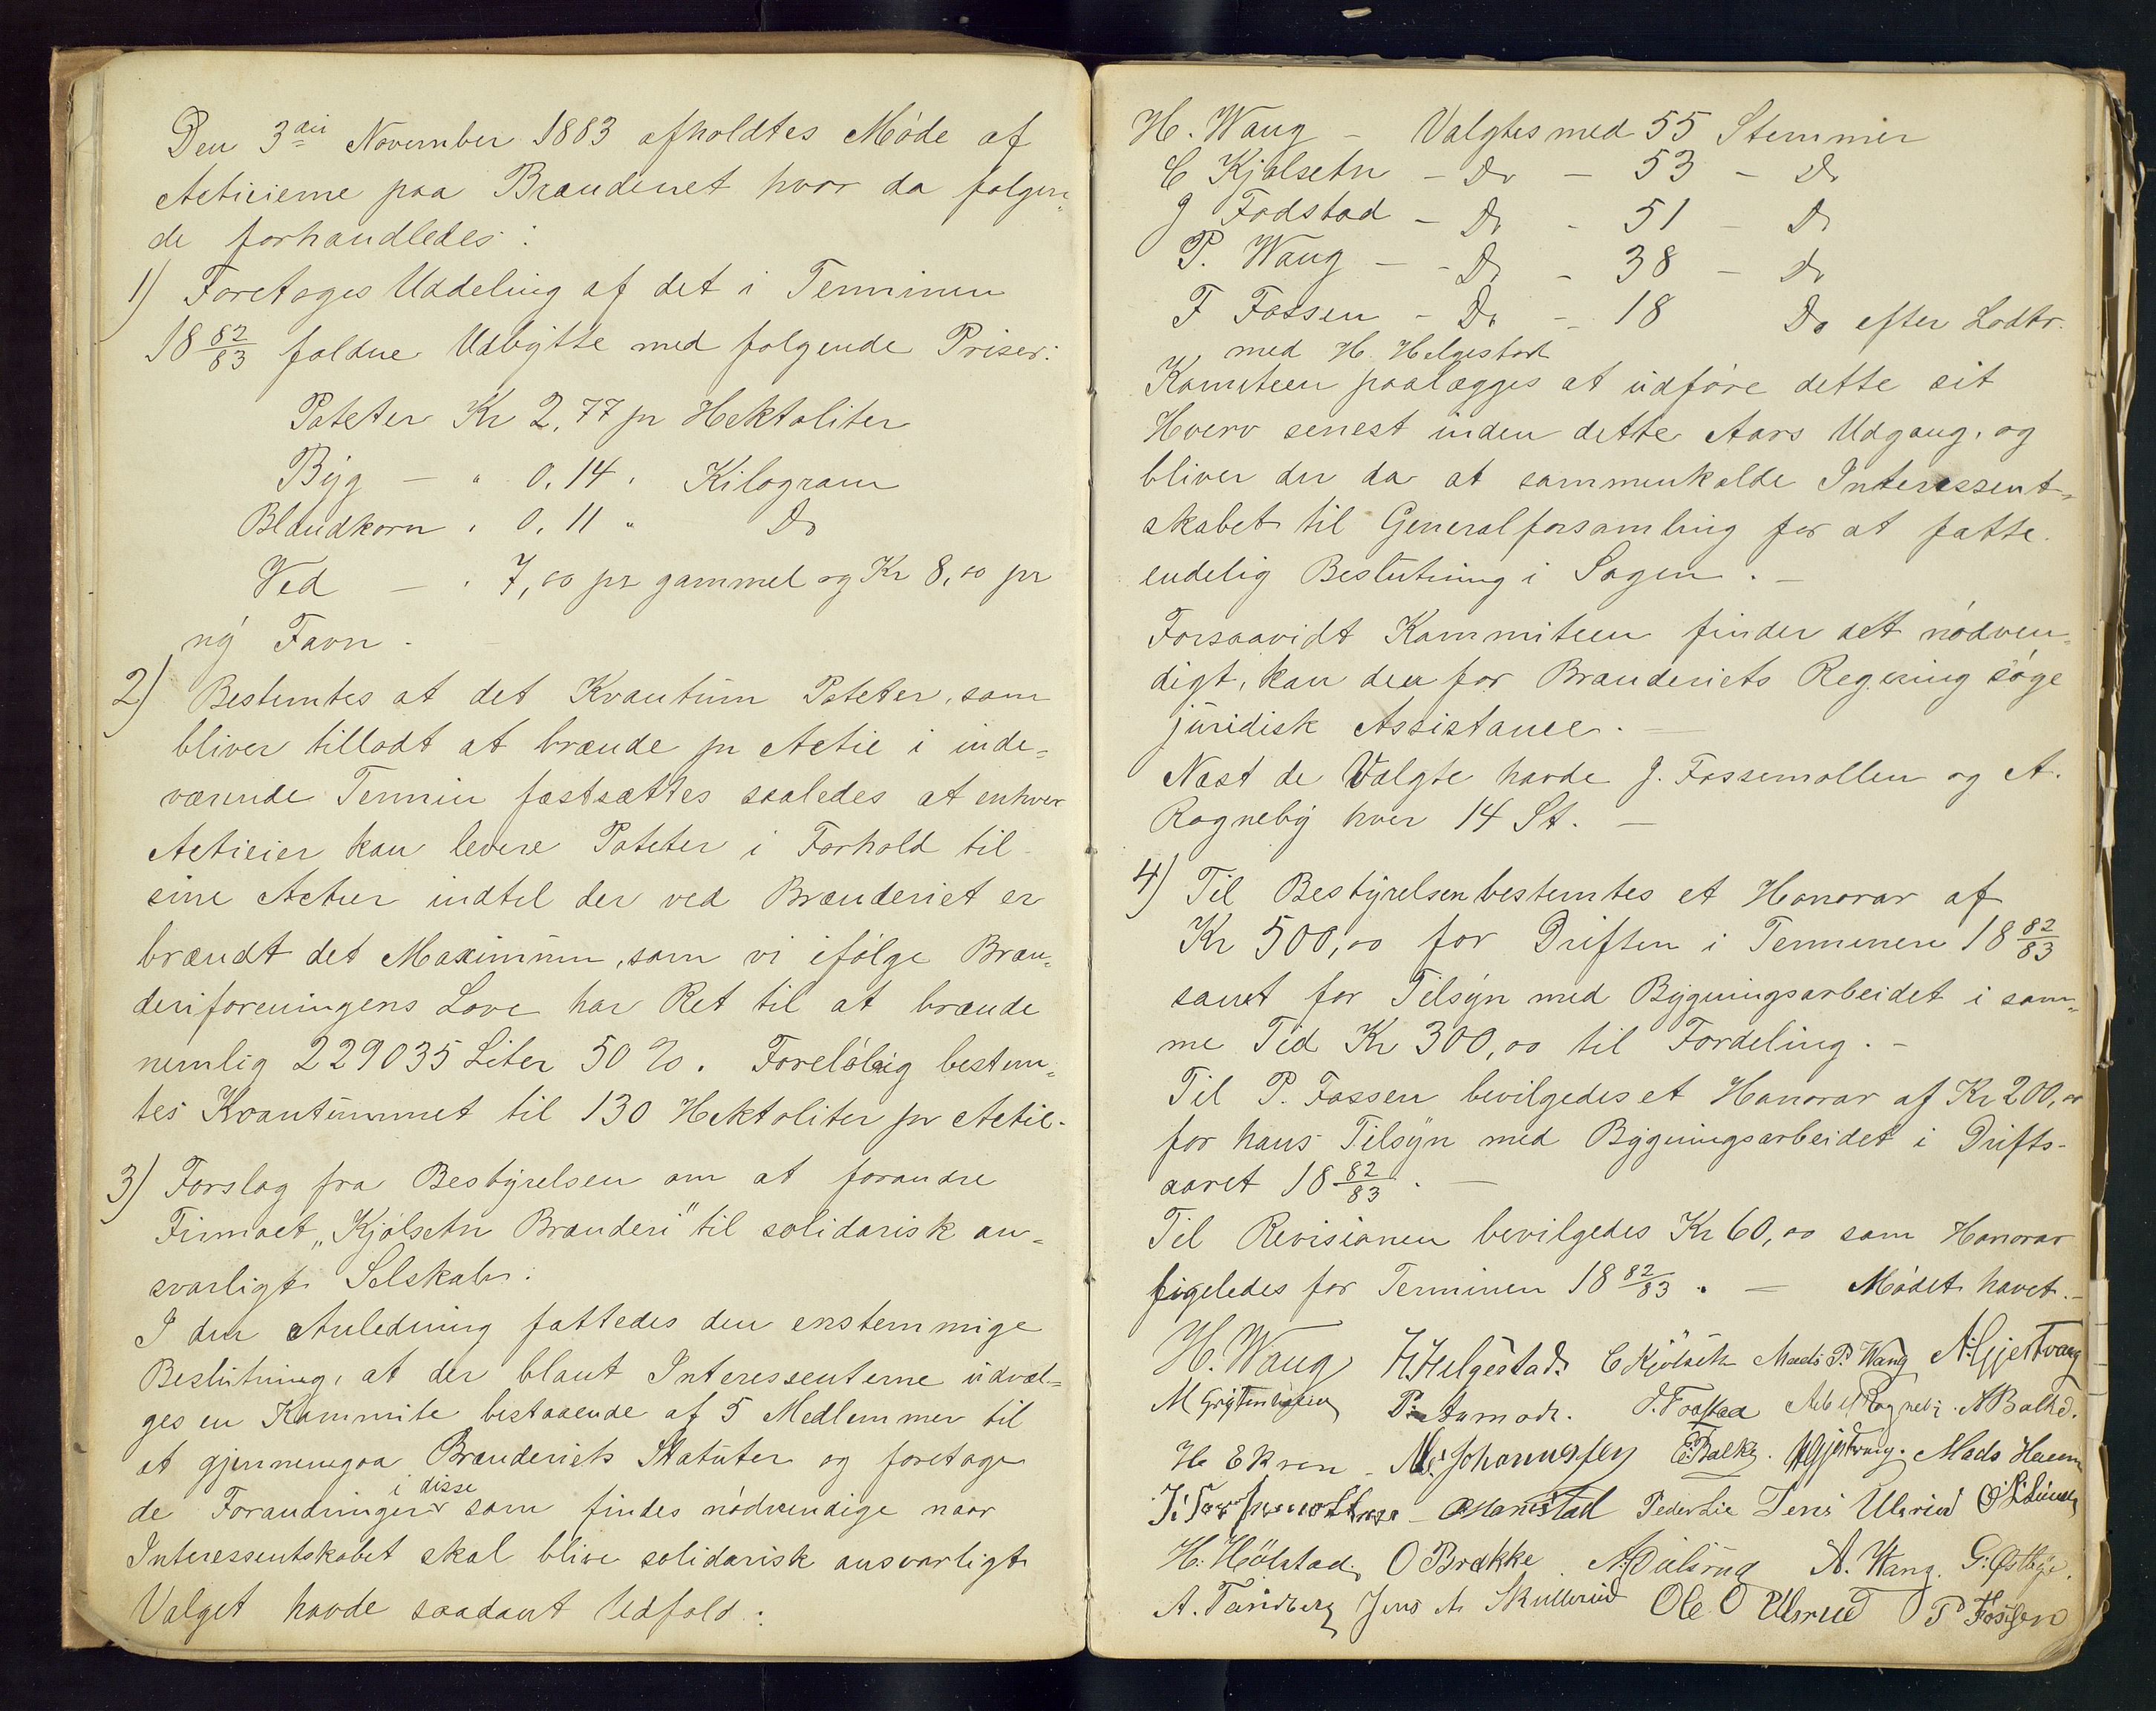 Den 3die November 1883 afholdtes Møde af
Actieierne paa Brænderiet hvor da følgen„
de forhandledes:
1) Foretoges Uddeling af det i Terminen
18 82/83 faldne Udbytte med følgende Priser:
Poteter Kr 2,77 pr Hektoliter
Byg — " 0,14 " Kilogram
Blandkorn " 0,11 " Do
Ved — " 7,00 pr gammel og Kr 8,00 pr
ny Favn.
2) Bestemtes at det Kvantum Poteter, som
bliver tilladt at brænde pr Actie i inde=
værende Termin fastsættes saaledes at enhver
Actieier kan levere Poteter i Forhold til
sine Actier indtil der ved Brænderiet er
brændt det Maximum, som vi ifølge Bræn„
deriforeningens Love har Ret til at brænde
nemlig 229035 Liter 50 %. Foreløbig bestem„
tes Kvantummet til 130 Hektoliter pr Actie.
3) Forslag fra Bestyrelsen om at forandre
Firmaet „Kjølsetn Brænderi" til solidarisk an=
svarligt Selskab.
I den Anledning fattedes den enstemmige
Beslutning, at der blant Interessenterne udvæl=
ges en Kommite bestaaende af 5 Medlemmer til
at gjennemgaa Brænderiets Statuter og foretage
i disse
de Forandringer som findes nødvendige naar
Interessentskabet skal blive solidarisk ansvarligt
Valget havde saadant Udfald:
H. Wang - Valgtes med 55 Stemmer
C Kjølsetn - Do - 53 - Do
J Fodstad - Do - 51 - Do
P. Wang - - Do - 38 - Do
F Fossen - Do - 18 Do efter Lodtr.
med H. Helgestad
Komiteen paalægges at udføre dette sit
Hverv senest inden dette Aars Udgang, og
bliver der da at sammenkalde Interessent„
skabet til Generalforsamling for at fatte
endelig Beslutning i Sagen. —
Forsaavidt Kommiteen finder det nødven„
digt, kan den for Brænderiets Regning søge
juridisk Assistance. —
Næst de Valgte havde J. Fossemøllen og A.
Rogneby hver 14 St. —
4) Til Bestyrelsen bestemtes et Honorar af
Kr 500,00 for Driften i Terminen 18 82/83
samt for Tilsyn med Bygningsarbeidet i sam„
me Tid Kr 300,00 til Fordeling. -
Til P. Fossen bevilgedes et Honorar af Kr 200,00
for hans Tilsyn med Bygningsarbeidet i Drifts-
aaret 18 82/83. —
Til Revisionen bevilgedes Kr 60,00 som Honorar
ligeledes for Terminen 18 82/83. — Mødet hævet. -
H. Wang H Helgestad C Kjölsetn Mads P. Wang N. Gjestvang
P. J. Fodstad A Balke.
H Ekren E. Balke. Gjestvang. Mads
Peder Lie Jens Ulsrud
H. Hölstad. O Brække A. Wang. G. Østbye.
A. Jens A Skullerud Ole O Ulsrud P Fossen